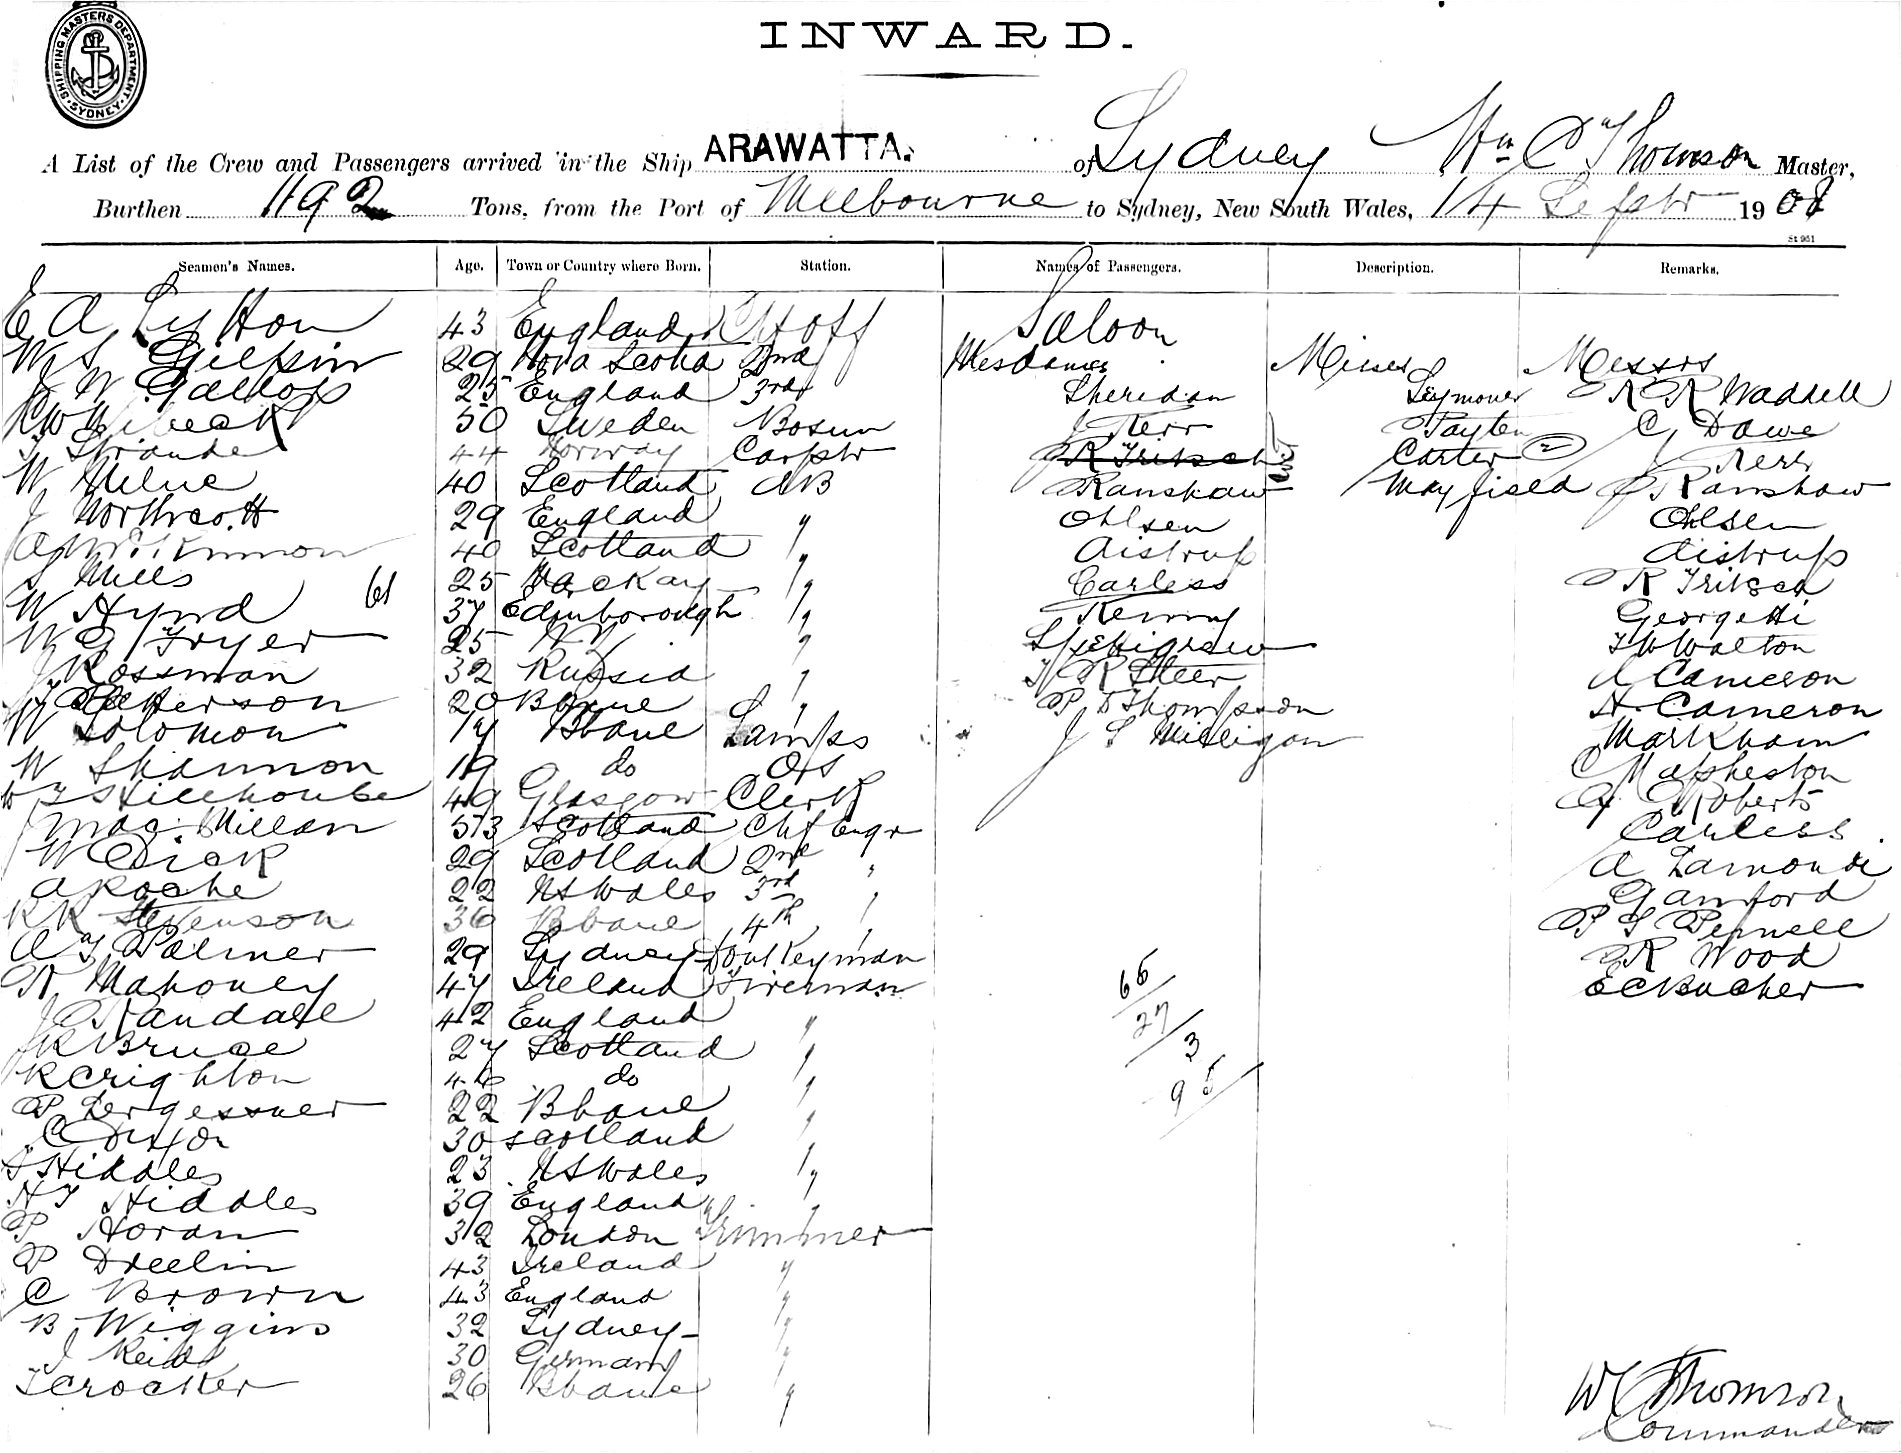 INWARD.
SHIPPING MASTERS DEPARTMENT SYDNEY
A List of the Crew and Passengers arrived in the Ship ARAWATTA. of Sydney Wm C Thomson Master,
Burthen 1192 Tons, from the Port of Melbourne to Sydney, New South Wales, 14 Septr 1908
St 961
Seamen's Names. Age. Town or Country where Born. Station. Names of Passengers. Description. Remarks.
E A Lytton 43 England Ch Off Saloon
W S Gilpin 29 Nova Scotia 2nd Mesdames Misses Messrs
J W Gallop 25 England 3rd Sheridan Seymour R R Waddell
50 Sweden Bosun J Kerr Payten C Dawe
J Strande 44 Norway Carptr R Fritsch Carter 2 J Kerr
W Milne 40 Scotland AB Ranshaw Mayfield J Ranshaw
J Northcott 29 England " Ohlsen Ohlsen
A McKinnon 40 Scotland " Aistrup Aistrup
S Mills 25 Mackay " Carless R Fritsch
W Hynd 61 37 Edinborough " Kenny Georgetti
W G Fryer 25 " S Pettigrew F W Walton
J Rossman 32 Russia " H R Steer A Cameron
J Petterson 20 " P D Thompson H Cameron
W Solomon 17 Bbane Lamps J S Milligan Markham
W Shannon 19 do OS C Mapheston
W J Hillhouse 49 Glasgow Clerk A E Roberts
J MacMillan 53 Scotland Chf Engr Carless
W Dick 29 Scotland 2nd " A Lamond
A Roche 22 NSWales 3rd " Gamford
R R Stevenson 36 Bbane 4th " P S Pernell
A J Palmer 29 Sydney Donkeyman R Wood
R Mahoney 47 Ireland Fireman E C Bucher
J Randall 42 England "
J R Bruce 27 Scotland "
R Crighton 46 do "
P Lergessner 22 Bbane "
C Dixon 30 Scotland "
S Hiddles 23 NSWales "
H J Hiddles 39 England "
P Horan 32 London Trimmer
P Dreelin 43 Ireland "
C Brown 43 England "
B Wiggins 32 Sydney "
J Reid 30 Germany "
T Crocker 26 Bbane "
65
27
3
95
W C Thomson
Commander